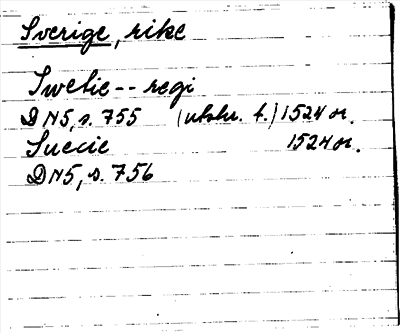 Sverige, rike
Swetie -- regi
DN5, s. 755 (utstr. t.) 1524 or.
Suecie 1524 or.
DN5, s. 756